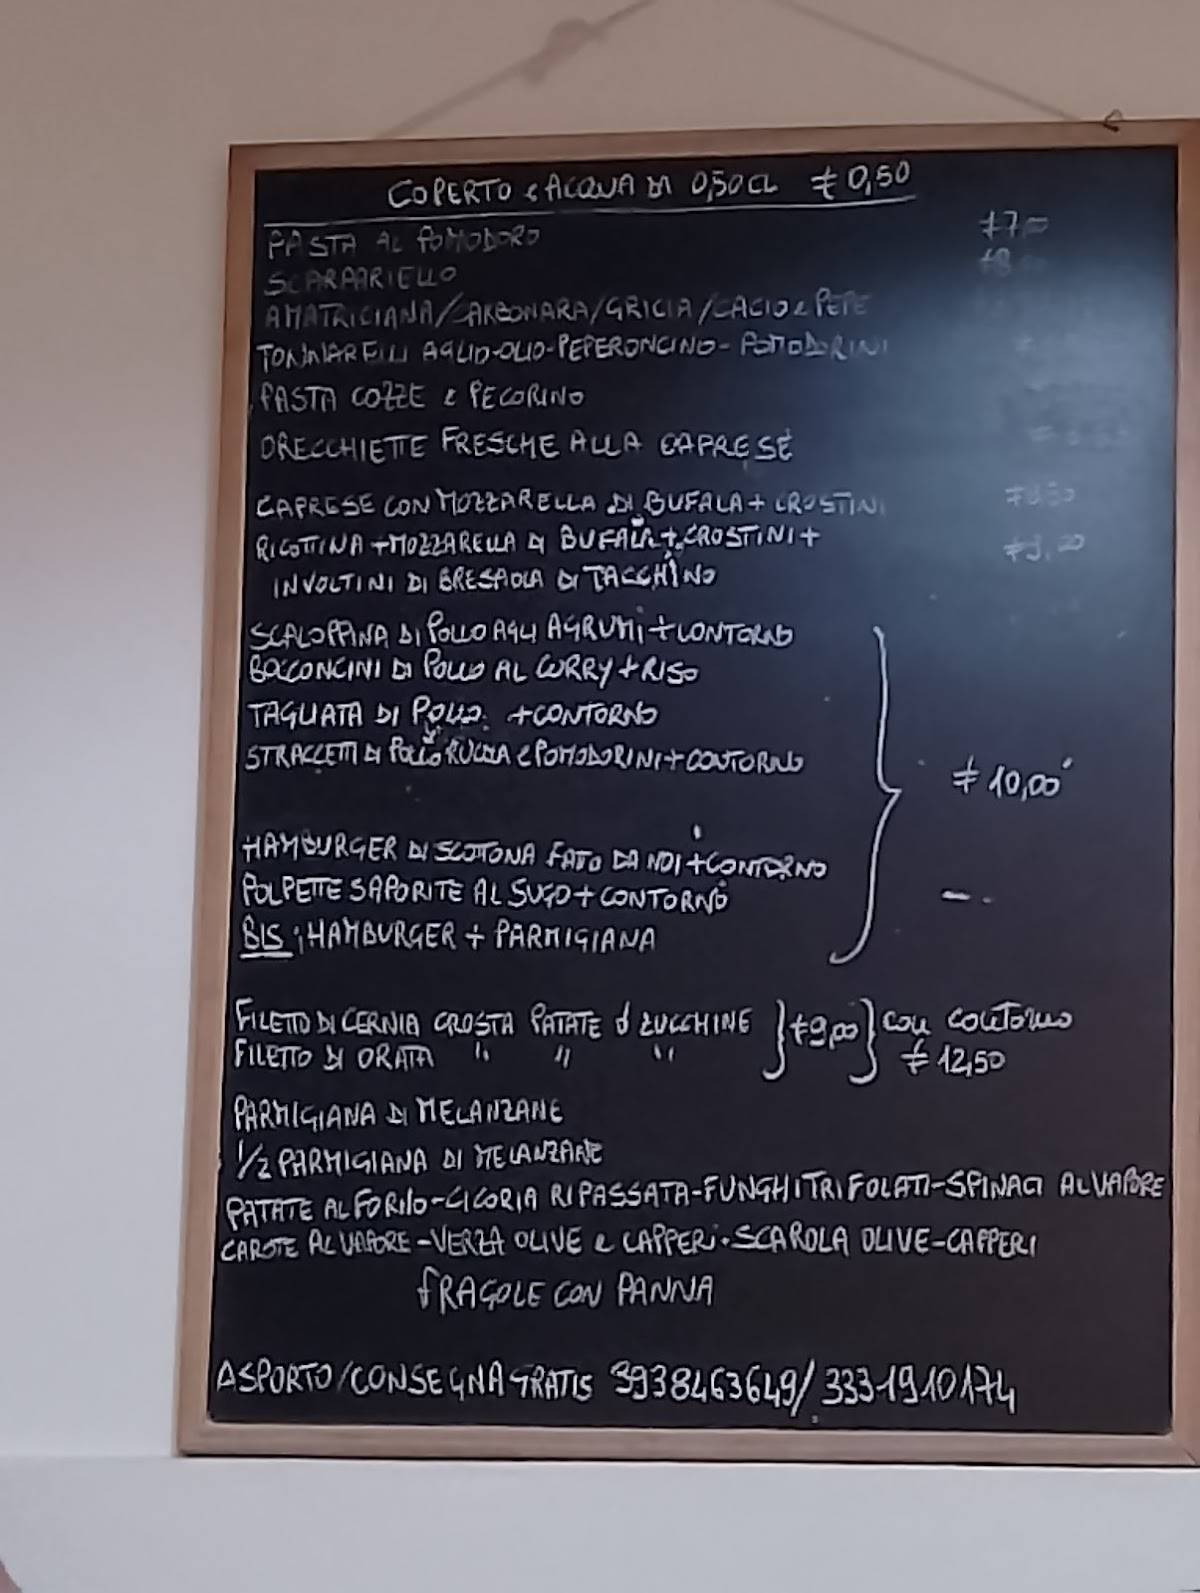 COPERTO e ACQUA DA 0,50CL €0,50
PASTA AL POMODORO €7,00
SCARPARIELLO €8
AMATRICIANA/CARBONARA/GRICIA/CACIO e PEPE
TONNARELLI AGLIO-OLIO-PEPERONCINO-POMODORINI
PASTA COZZE e PECORINO
ORECCHIETTE FRESCHE ALLA CAPRESE
CAPRESE CON MOZZARELLA DI BUFALA + CROSTINI
RICOTTINA + MOZZARELLA DI BUFALA + CROSTINI + €9,00
INVOLTINI DI BRESAOLA DI TACCHINO
SCALOPPINA DI POLLO AGLI AGRUMI + CONTORNO
BOCCONCINI DI POLLO AL CURRY + RISO
TAGLIATA DI POLLO. + CONTORNO
STRACCETTI DI POLLO RUCOLA e POMODORINI + CONTORNO
€10,00
HAMBURGER DI SCOTTONA FATTO DA NOI + CONTORNO
POLPETTE SAPORITE AL SUGO + CONTORNO
BIS: HAMBURGER + PARMIGIANA
FILETTO DI CERNIA CROSTA PATATE o ZUCCHINE } €9,00 } con contorno
FILETTO DI ORATA " " " €12,50
PARMIGIANA DI MELANZANE
1/2 PARMIGIANA DI MELANZANE
PATATE AL FORNO-CICORIA RIPASSATA-FUNGHI TRIFOLATI-SPINACI AL VAPORE
CAROTE AL VAPORE-VERZA OLIVE e CAPPERI-SCAROLA OLIVE-CAPPERI
FRAGOLE CON PANNA
ASPORTO/CONSEGNA GRATIS 3938463649/3331910174